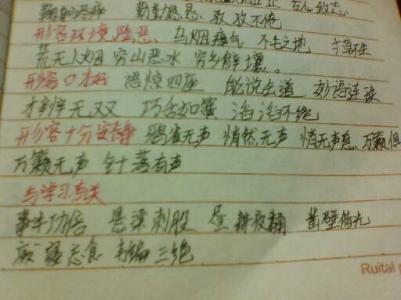 勤勤恳恳 孜孜不倦
形容环境恶 乌烟瘴气 不毛之地 寸草不生
荒无人烟 穷山恶水 穷乡僻壤。
形容口才好 语惊四座 能说会道 妙语连珠
才辩无双 巧舌如簧 滔滔不绝
形容十分安静 鸦雀无声 悄然无声 悄无声息 万籁俱
万籁无声 针落有声
与学习有关
事半功倍 悬梁刺股 昼耕夜诵 凿壁借光
废寝忘食 韦编三绝
Ruital